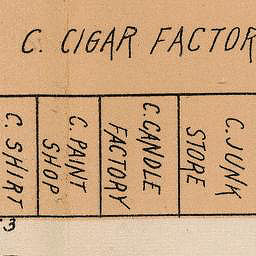 C. CIGAR FACTOR
C. SHIRT
C. PAINT
SHOP
C. CANDLE
FACTORY
C. JUNK
STORE
3